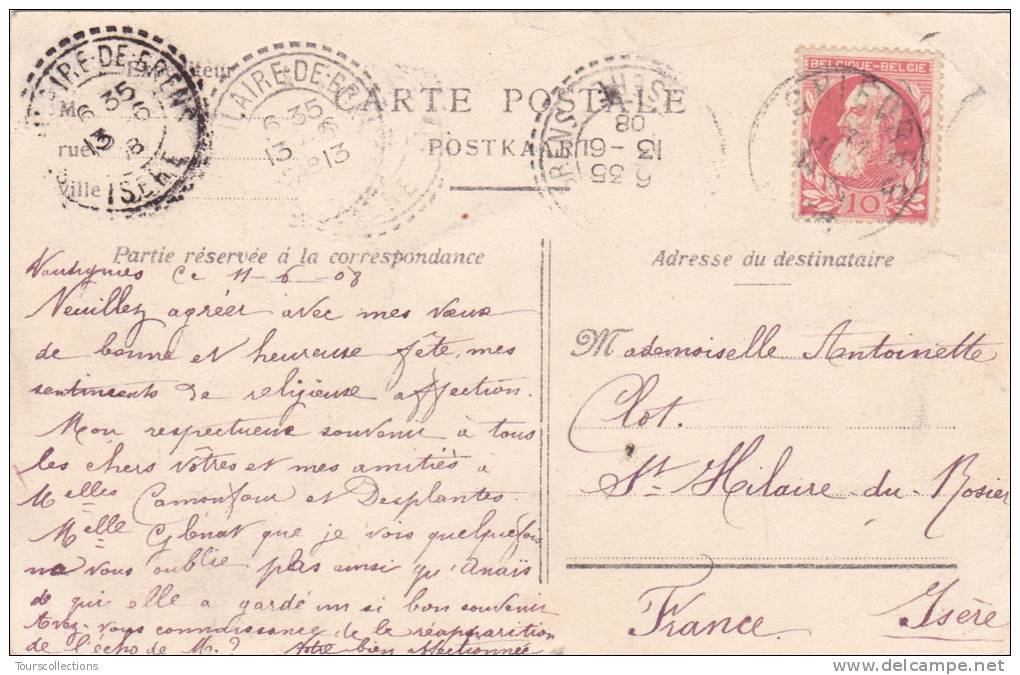 HILAIRE-DE-BRENS
6 35
13 -6
08
ISÈRE
HILAIRE-DE-BRENS
6 35
13 -6
ISÈRE
BRENS ISÈRE
6 35
13 -6
08
Expéditeur
M
rue
ville
CARTE POSTALE
POSTKAART
BELGIQUE-BELGIE
10
Partie réservée á la correspondance
Ce 11-6-08
Veuillez agréer avec mes vœux
de bonne et heureuse fête, mes
sentiments de religieuse affection.
Mon respectueux souvenir à tous
les chers vôtres et mes amitiés à
Melles Camonfour et Desplantes.
Melle Glénat que je vois quelquefois
ne vous oublie pas ainsi qu'Anaïs
de qui elle a gardé un si bon souvenir
Avez-vous connaissance de la réapparition
de l'écho de M.? Votre bien affectionnée
Adresse du destinataire
Mademoiselle Antoinette
Clot.
St Hilaire-du-Rosier
France. Isère
Tourscollections